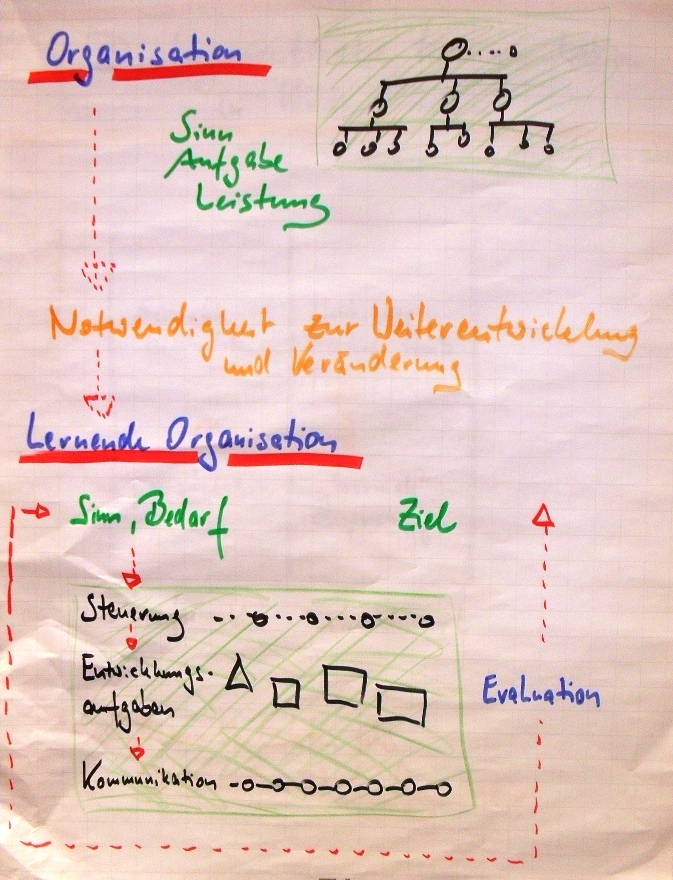 Organisation
Sinn
Aufgabe
Leistung
Notwendigkeit zur Weiterentwicklung
und Veränderung
Lernende Organisation
Sinn, Bedarf
Ziel
Steuerung
Entwicklungs-
aufgaben
Evaluation
Kommunikation